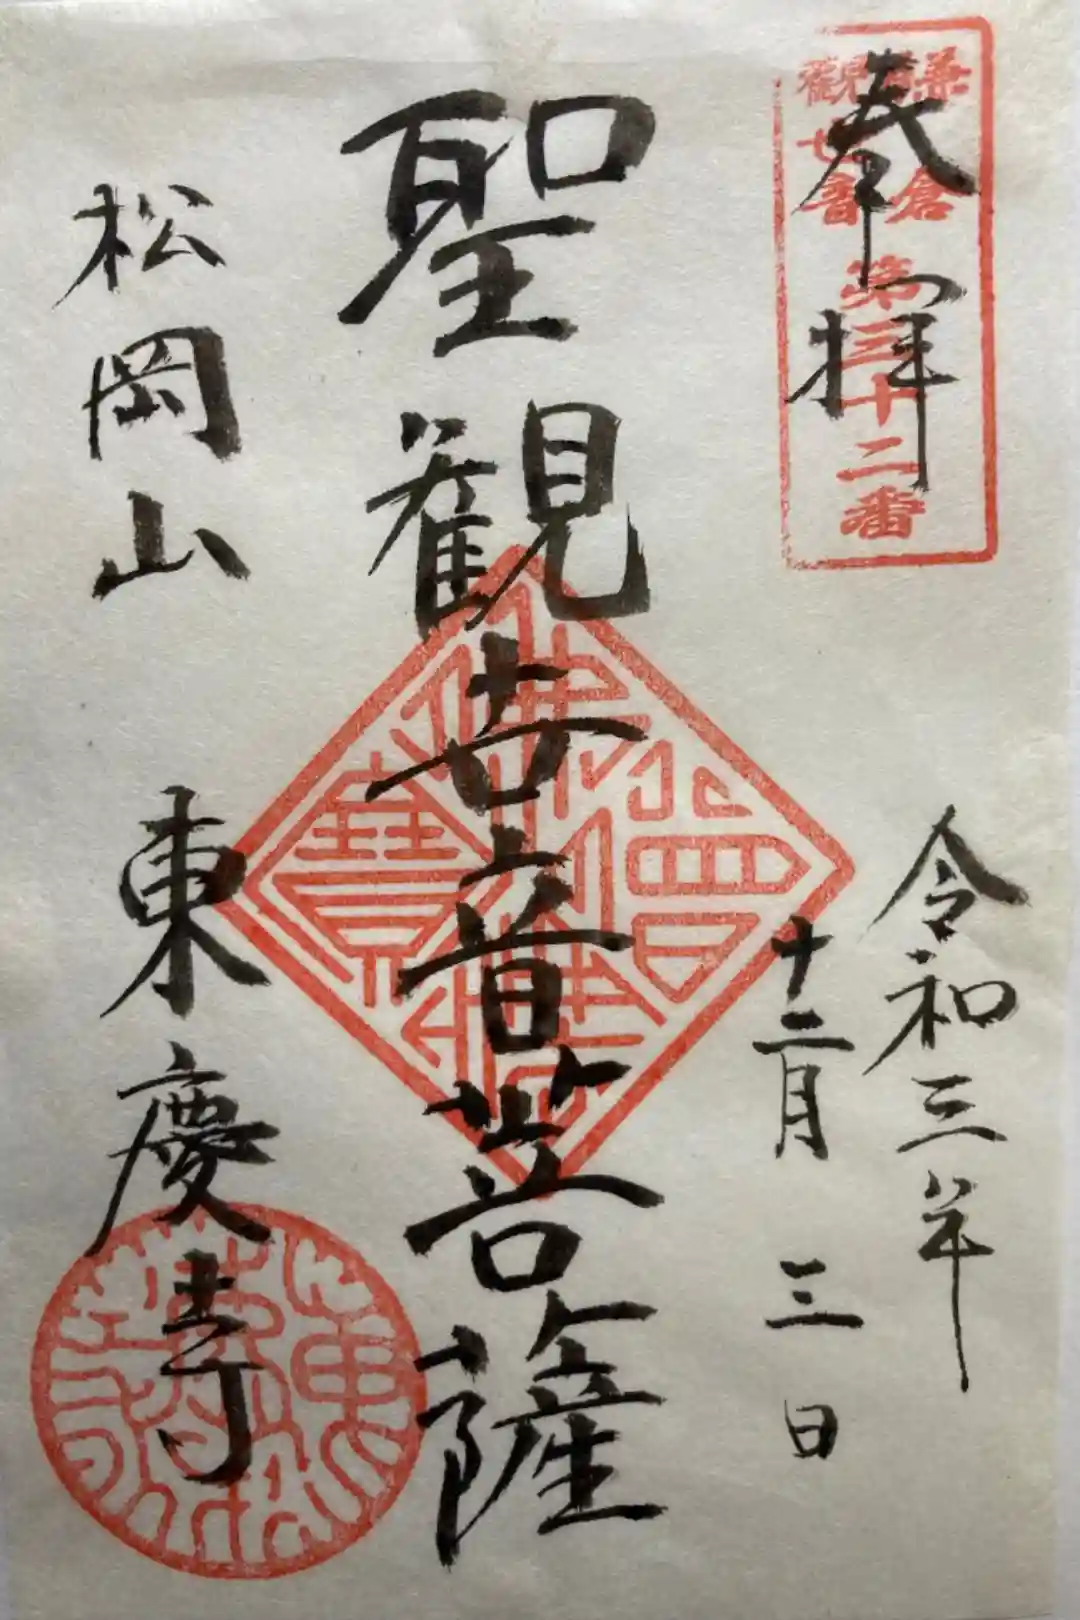 奉拝
鎌倉
観世音
第三十二番
令和三年
十二月三日
聖観世音菩薩
佛法僧寶
松岡山
東慶寺